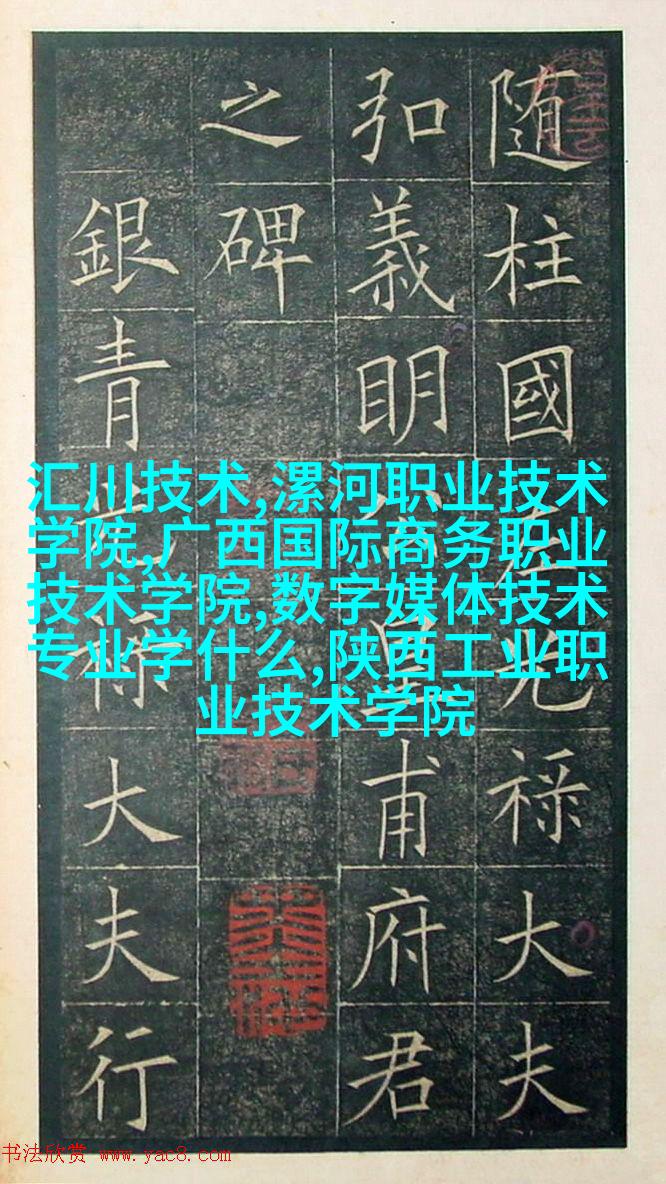 随柱國左光禄大夫
弘義明公皇甫府君
之碑
銀青光禄大夫行
汇川技术,漯河职业技术
学院,广西国际商务职业
技术学院,数字媒体技术
专业学什么,陕西工业职
业技术学院
书法欣赏 www.yac8.com